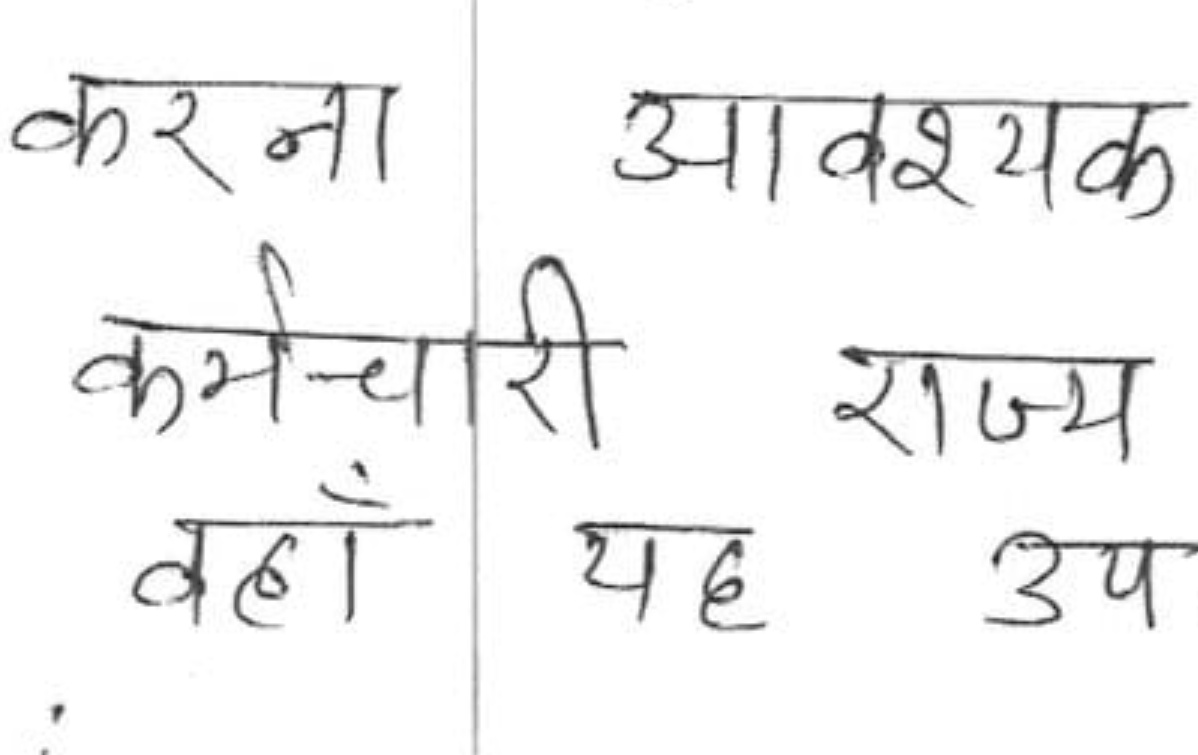 करना आवश्यक
कर्मचारी राज्य
वहाँ यह उप